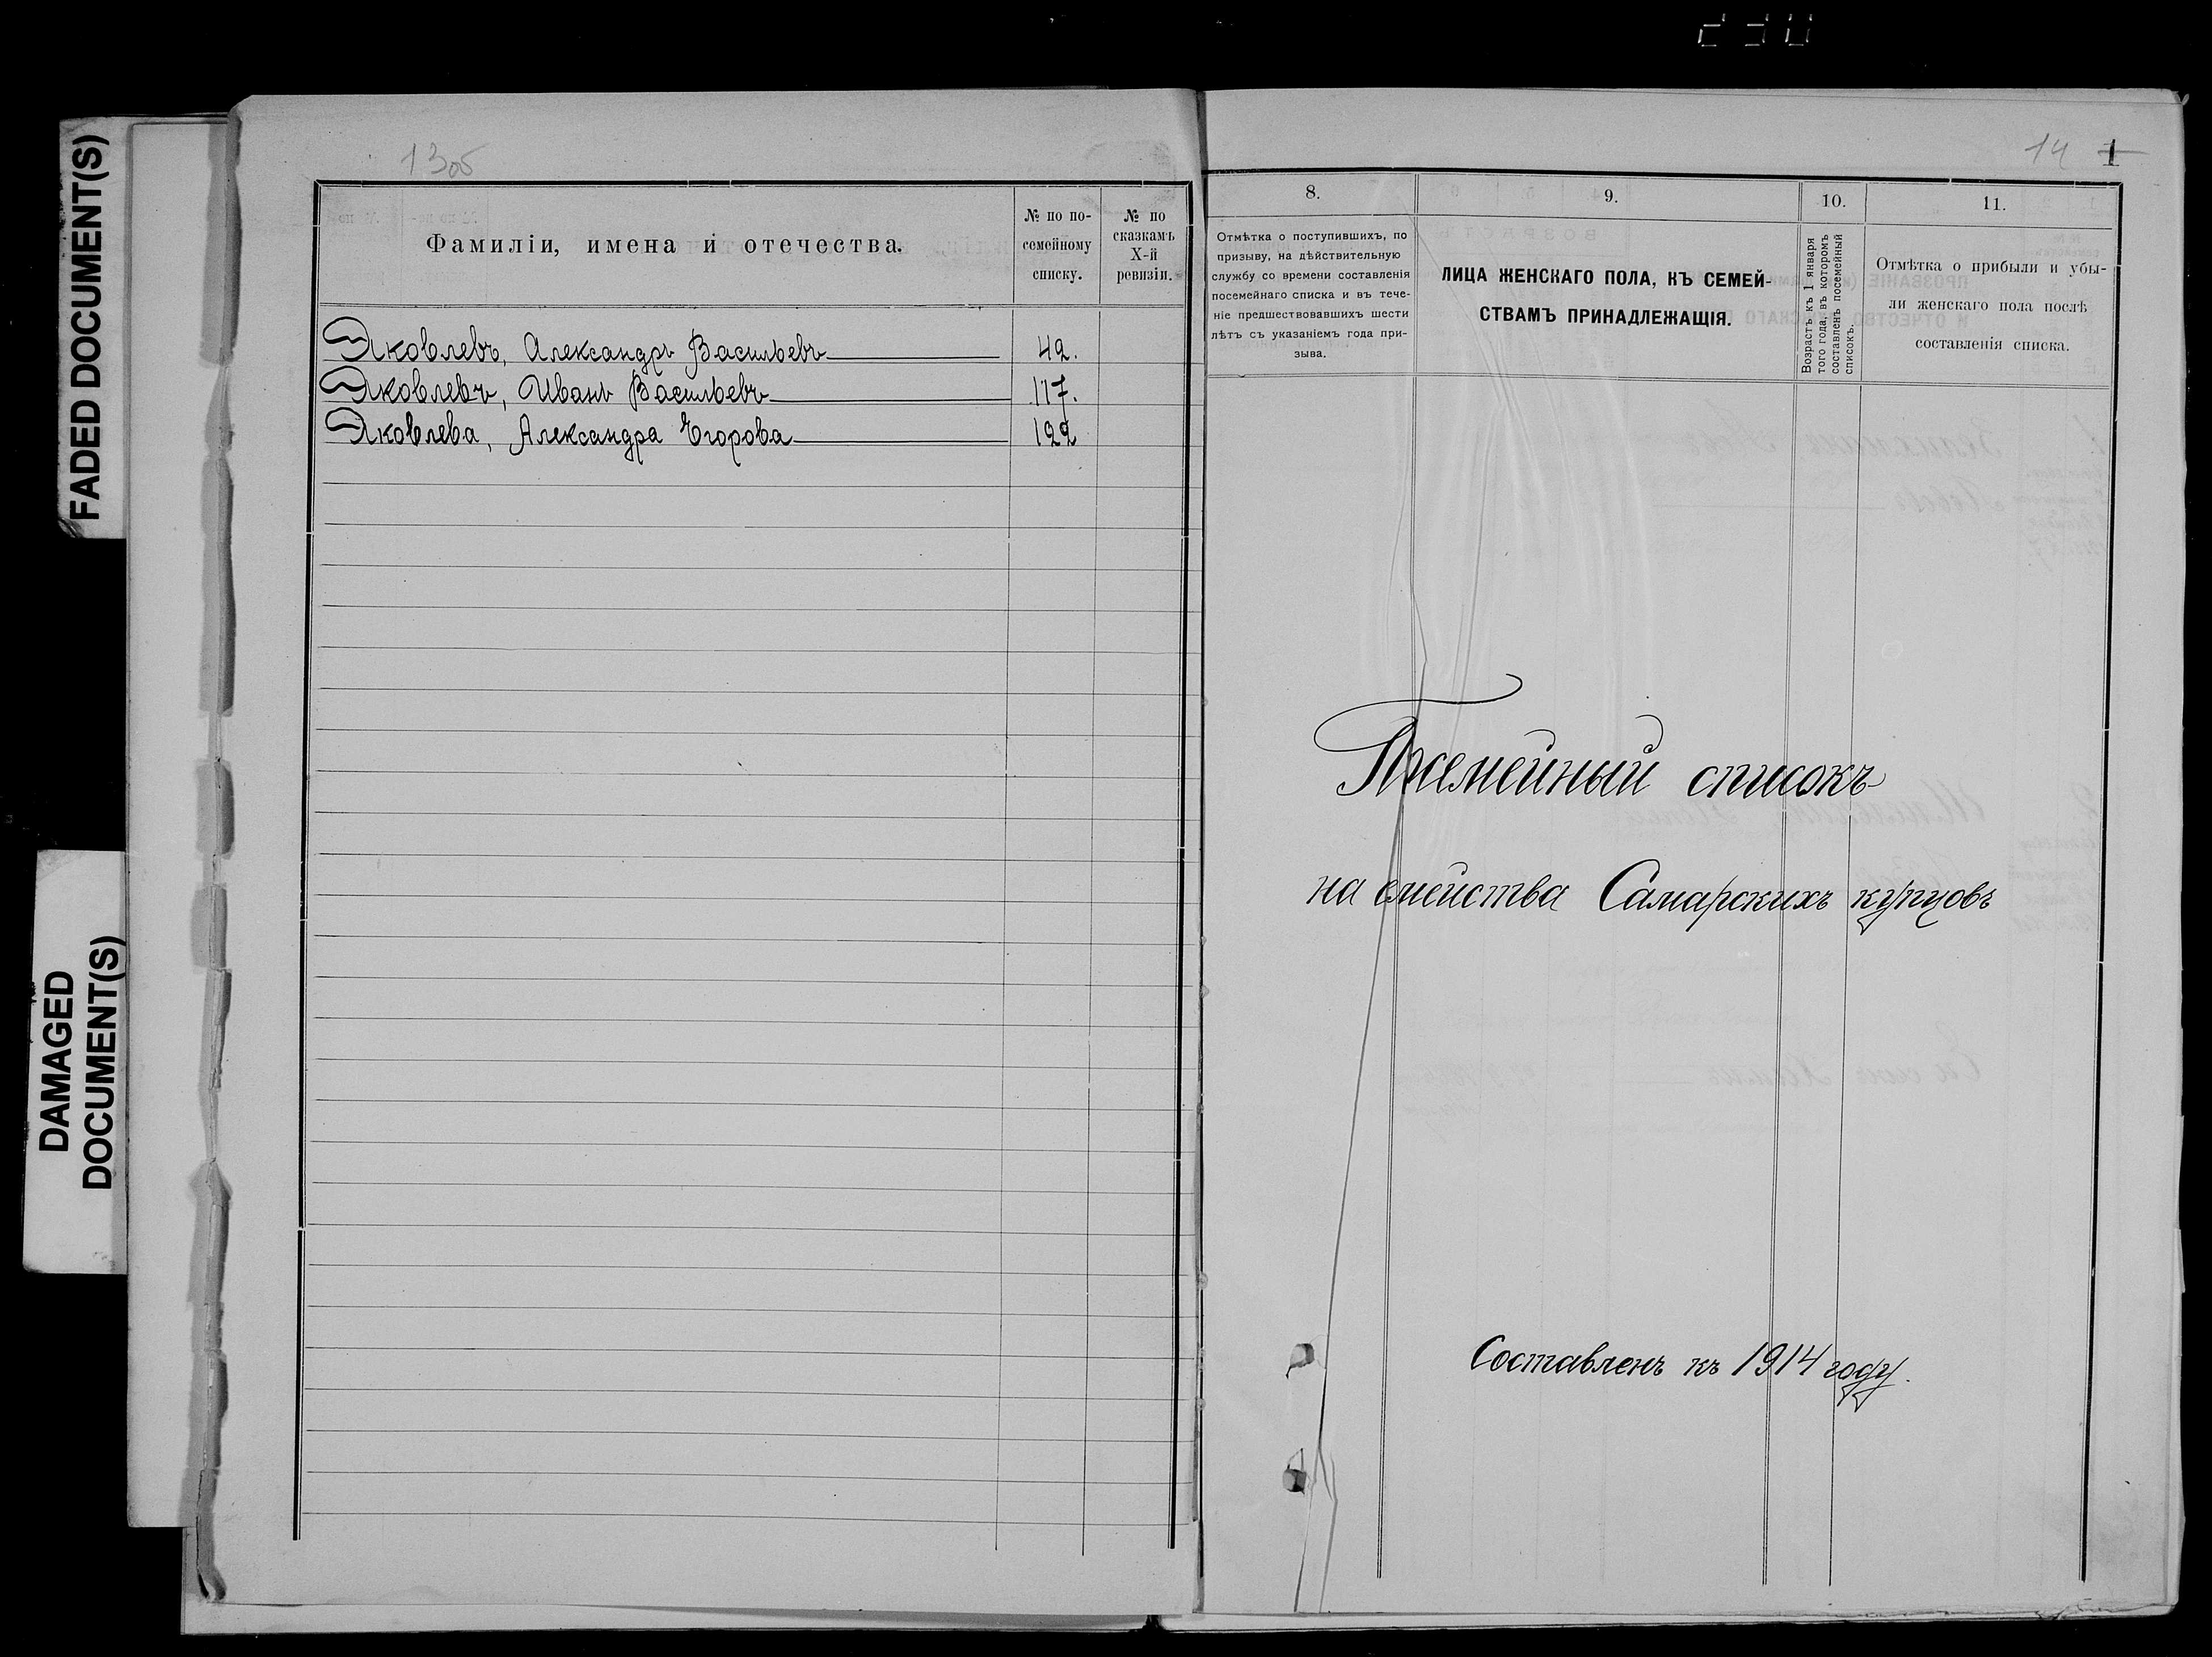 230
FADED DOCUMENT(S)
DAMAGED
DOCUMENT(S)
13об
Фамиліи, имена и отечества.
№ по по-
семейному
списку.
№ по
сказкамъ
X-й
ревизіи.
Яковлевъ, Александръ Васильевъ 42.
Яковлевъ, Иванъ Васильевъ 117.
Яковлева, Александра Егорова 122
14 1
8.
9.
10.
11.
Отмѣтка о поступившихъ, по
призыву, на дѣйствительную
службу со времени составленія
посемейнаго списка и въ тече-
ніе предшествовавшихъ шести
лѣтъ съ указаніемъ года при-
зыва.
ЛИЦА ЖЕНСКАГО ПОЛА, КЪ СЕМЕЙ-
СТВАМЪ ПРИНАДЛЕЖАЩІЯ.
Возрастъ къ 1 января
того года, въ которомъ
составленъ посемейный
списокъ.
Отмѣтка о прибыли и убы-
ли женскаго пола послѣ
составленія списка.
Посемейный списокъ
на семейства Самарскихъ купцовъ
Составленъ къ 1914 году.